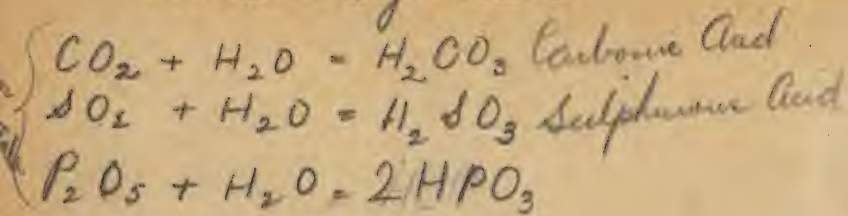 CO₂ + H₂O = H₂CO₃ Carbonic Acid
SO₂ + H₂O = H₂SO₃ Sulphurous Acid
P₂O₅ + H₂O = 2HPO₃